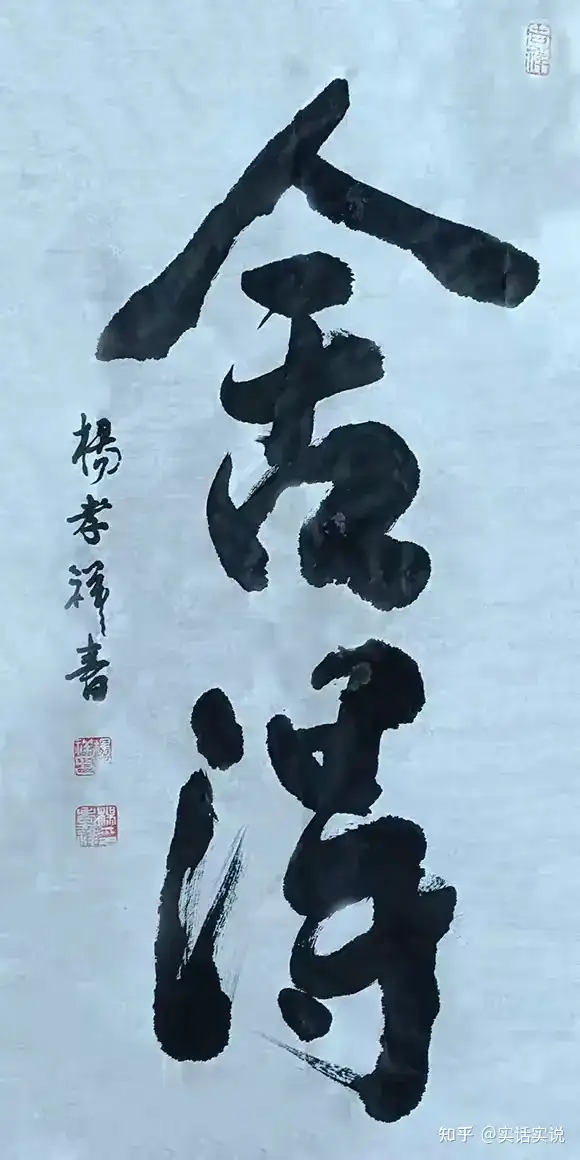 舍得
楊孝祥書
知乎 @实话实说